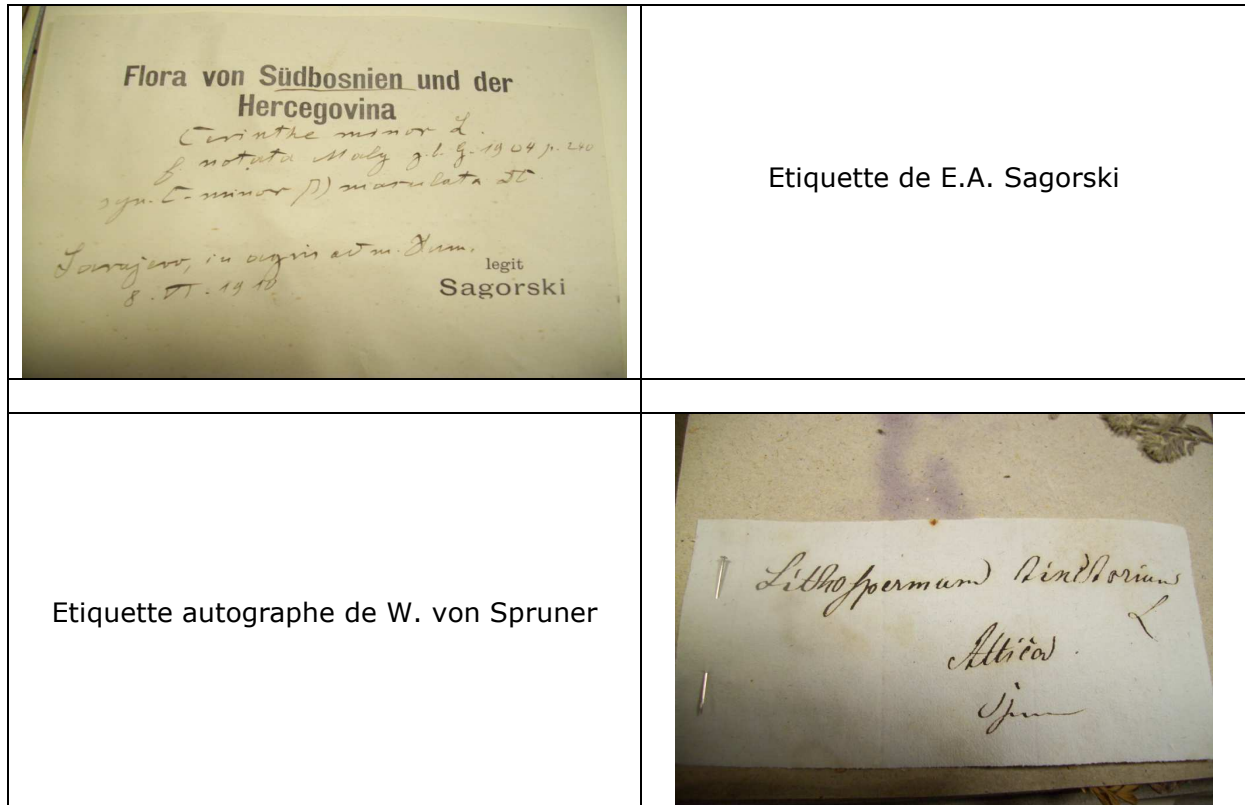 Flora von Südbosnien und der
Hercegovina
Cerinthe minor L.
f. notata Maly z. b. G. 1904 p. 240
syn. C. minor β) maculata DC
Sarajevo, in agris ad m. Hum.
8. VI. 1910
legit
Sagorski
Etiquette de E.A. Sagorski
Etiquette autographe de W. von Spruner
Lithospermum tinctorium
L
Attica.
Sprun